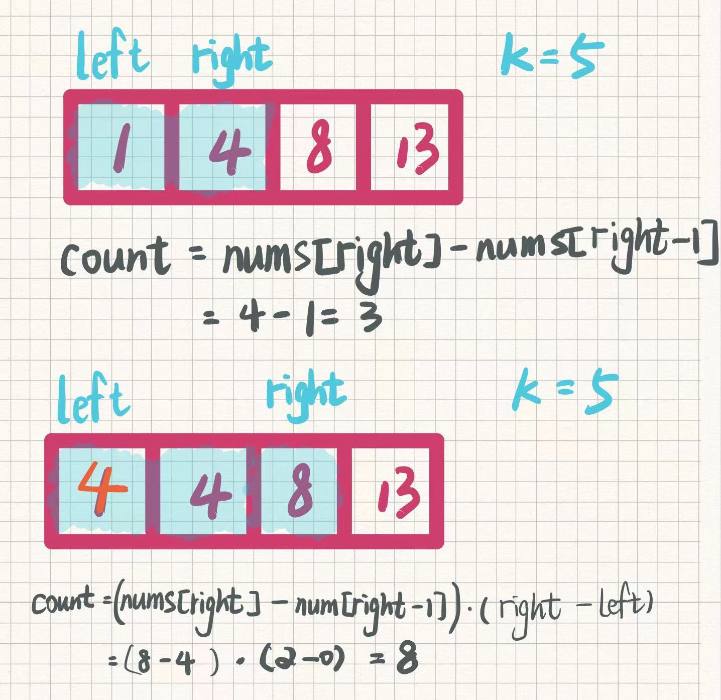 left right k=5
1 4 8 13
count = nums[right]-nums[right-1]
= 4-1= 3
left right k=5
4 4 8 13
count=(nums[right]-num[right-1])·(right-left)
=(8-4)·(2-0) =8